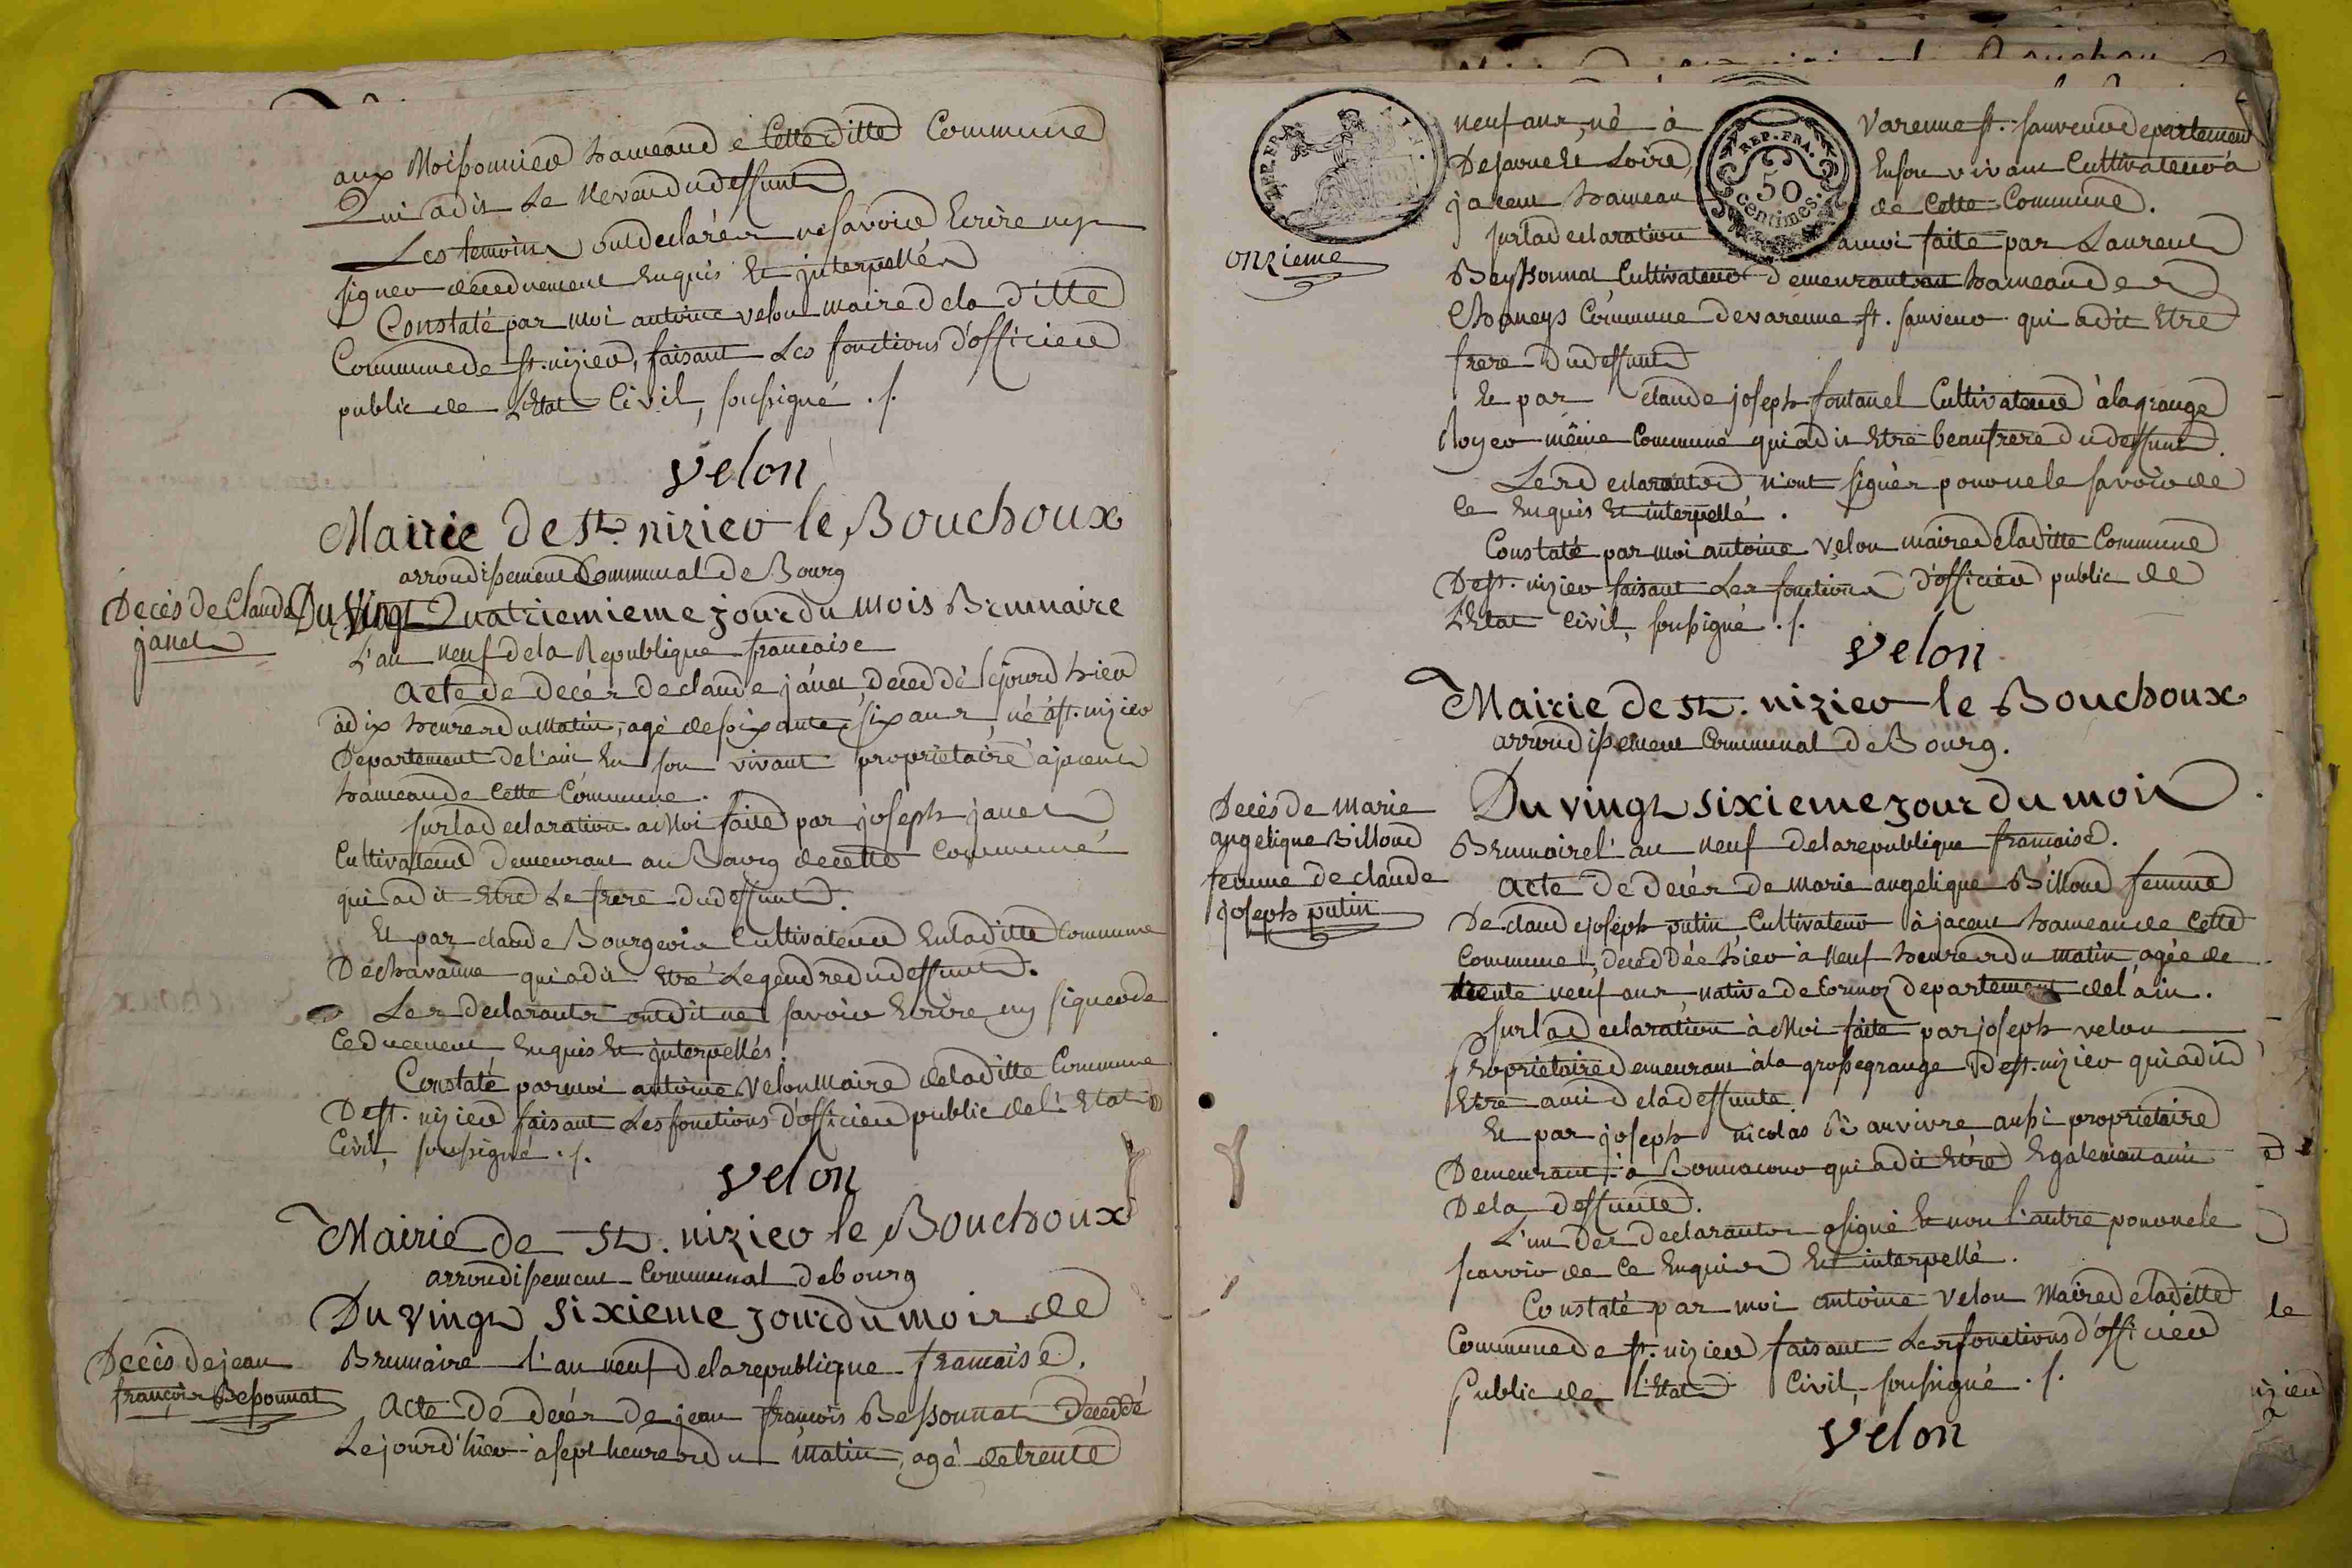 aux Moissonnier hameaude Cette ditte Commune
Qui adit Le Neveududeffunt
Les temoins ont declarér ne savoire Ecrire ny
signer decedument Enquis Et jnterpellér
Constaté par moi antoine velon maire dela ditte
Commune de st. nizier, faisant Les fonctions d'officier
public de L'Etat Civil, soussigné ./.
velon
Mairie de St. nizier le Bouchoux
arrondissement Communal de Bourg
Decès de Claude
janet
Du Vingt Quatriemieme jour du mois Brumaire
L'an neuf dela Republique francaise
Acte de Decér de claude jánet, Deceddé le jourd hier
à dix heurer du Matin, agé de soixante six anr, né à st. nizier
Departement de l'ain En son vivant proprietaire à jacent
hameau de Cette Commune.
sur la declaration a Moi faite par joseph janet
Cultivateur Demeurant au Bourg de cette Commune
qui adit Etre Le frere du deffunt.
Et par claude Bourgeoir Cultivateur En la ditte Commune
De chavanne qui adit Etre Le gendre du deffunt.
Ler declarantr ont dit ne savoir Ecrire ny signer de
Ceducement Enquis Et jnterpellés.
Constaté par moi antoine Velon Maire de la ditte Commune
De st. nizier faisant Les fonctions d'officier public de l'Etat
Civil, soussigné ./.
velon
Mairie de St. nizier le Bouchoux
arrondissement Communal de bourg
Du vingt sixieme jour du moir de
Decès de jean
françoir Bessonnat
Brumaire l'an neuf dela republique francaise.
Acte De decér de jean francois Bessonnat Decedé
Le jourd'hier à sept heurer du matin, agé de trente
REP. FRA.
REP. FRA.
50
centimes.
onzieme
neuf anr, né à Varenne st. sauveur departement
De saone Et Loire, En son vivant Cultivateur à
jacent hameau de Cette Commune.
sur la declaration a moi faite par Laurent
Beyssonnat Cultivateur demeurant au hameau der
Chaneys Commune de varenne st. sauveur qui adit Etre
frere du deffunt
Et par claude joseph fontanel Cultivateur à la grange
Royer même Commune qui adit Etre beaufrere du deffunt.
Ler declarantr n'ont signér pour ne le savoir de
Ce Enquis Et interpellé.
Constaté par moi antoine Velon maire de la ditte Commune
De st. nizier faisant Ler fonctionr d'officier public de
L'Etat Civil, soussigné ./.
velon
Mairie de St. nizier le Bouchoux
arrondissement Communal de Bourg.
Du vingt sixieme jour du moir
Decès de marie
angelique Billoud
femme de claude
joseph putin
Brumaire l'an neuf de la republique francaise.
Acte De Decér De marie angelique Billoud femme
De claude joseph putin Cultivateur à jacent hameau de Cette
Commune, decedDée hier à neuf heurer du matin, agée de
trente neuf anr, native de Cormoz departement de l'ain.
sur la declaration à Moi faite par joseph velon
Proprietaire Demeurant à la grosse grange De st. nizier qui adit
Etre ami de la deffunte.
Et par joseph nicolas Beauvivre aussi proprietaire
Demeurant à Bonnacour qui adit Etre Egalement ami
De la deffunte.
L'un Der Declarantr a signé Et non l'autre pour ne le
scavoir de Ce Enquir Et interpellé.
Constaté par moi antoine Velon Maire de la ditte
Commune de st. nizier faisant Ler fonctions d'officier
Public de L'Etat Civil, soussigné ./.
velon
le
nizier